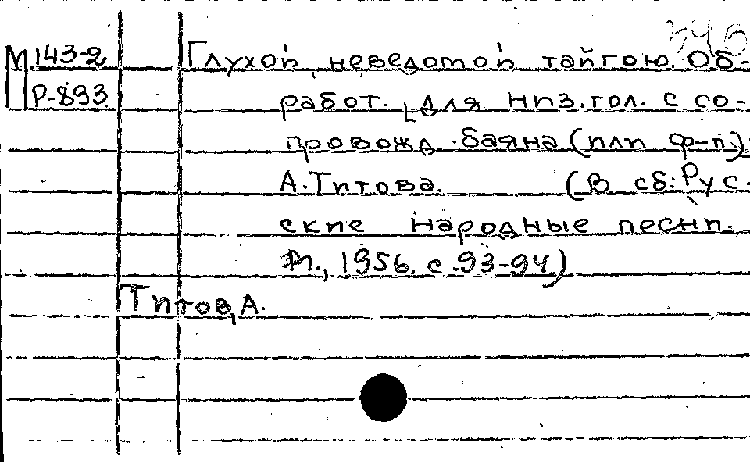 М 143-2 Глухой, неведомой тайгою. Об-
Р-893 работ. для низ. гол. с со-
провожд. баяна (или ф-п.)
А. Титова. (В сб: Рус-
ские народные песни.
М., 1956. с. 93-94)
Титов, А.